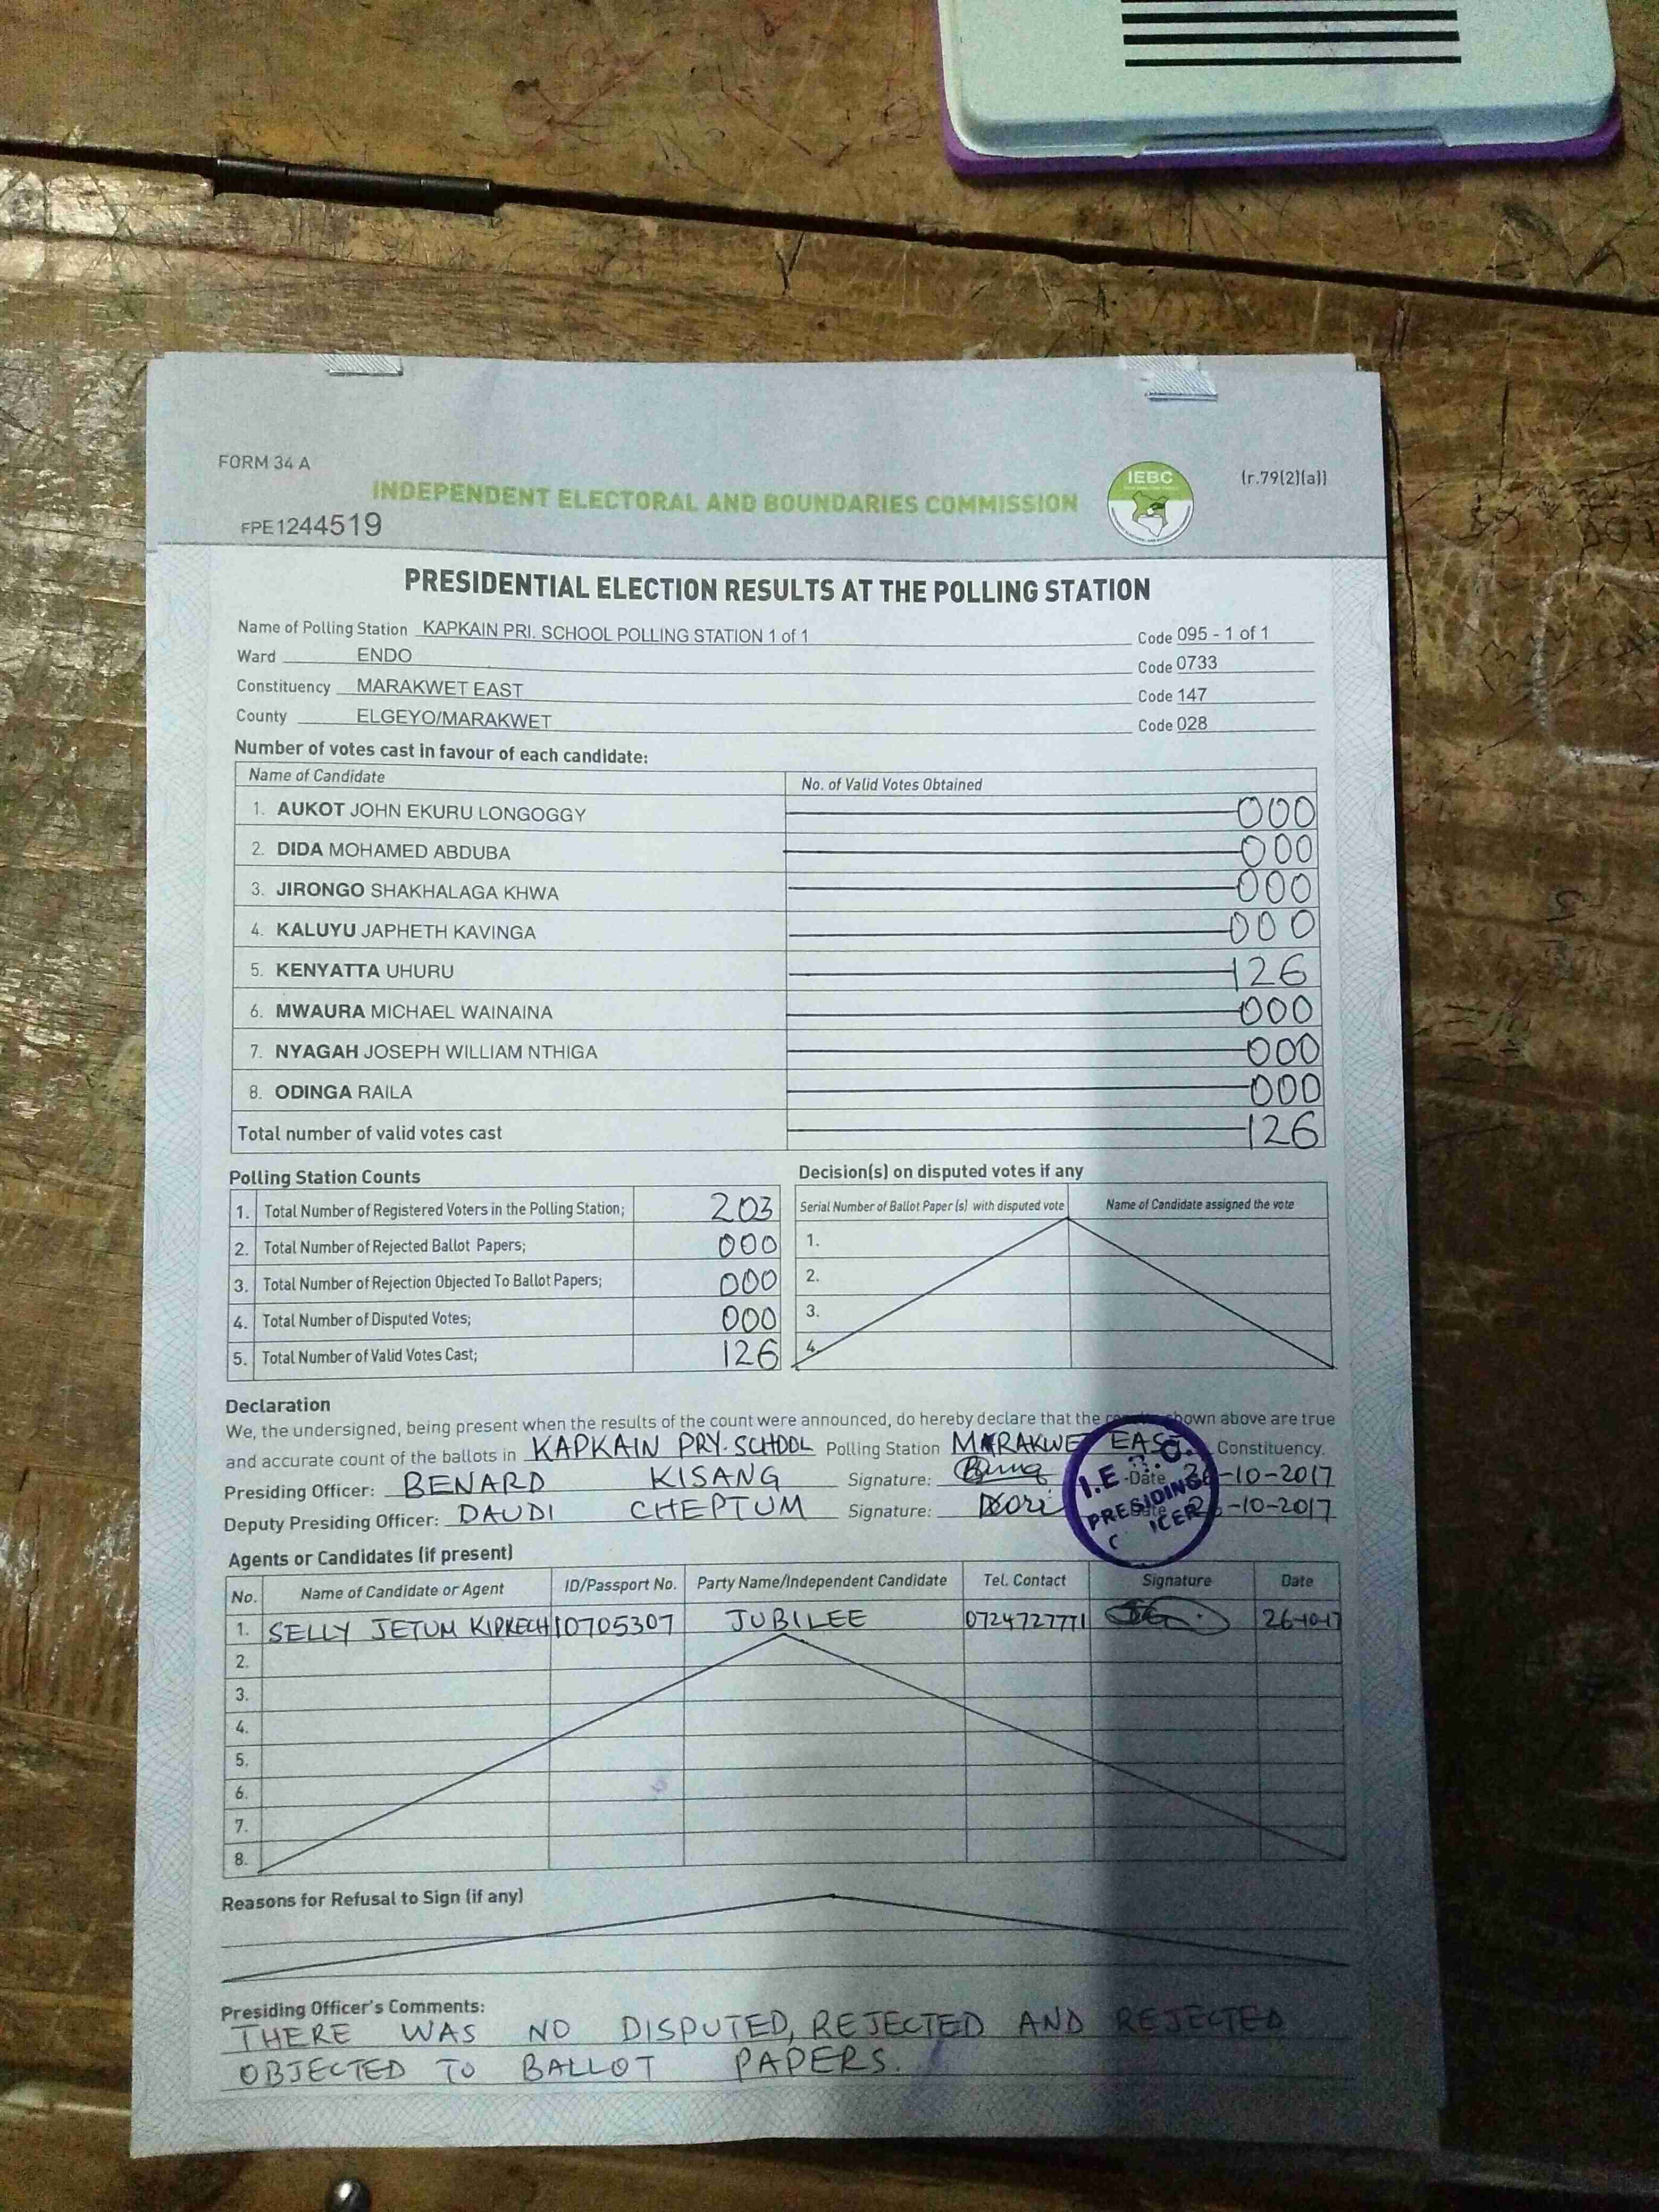 FORM 34 A
(r.79(2)(a))
INDEPENDENT ELECTORAL AND BOUNDARIES COMMISSION
IEBC
FPE1244519
PRESIDENTIAL ELECTION RESULTS AT THE POLLING STATION
Name of Polling Station KAPKAIN PRI. SCHOOL POLLING STATION 1 of 1 Code 095 - 1 of 1
Ward ENDO Code 0733
Constituency MARAKWET EAST Code 147
County ELGEYO/MARAKWET Code 028
Number of votes cast in favour of each candidate:
Name of Candidate No. of Valid Votes Obtained
1. AUKOT JOHN EKURU LONGOGGY 000
2. DIDA MOHAMED ABDUBA 000
3. JIRONGO SHAKHALAGA KHWA 000
4. KALUYU JAPHETH KAVINGA 000
5. KENYATTA UHURU 126
6. MWAURA MICHAEL WAINAINA 000
7. NYAGAH JOSEPH WILLIAM NTHIGA 000
8. ODINGA RAILA 000
Total number of valid votes cast 126
Polling Station Counts
1. Total Number of Registered Voters in the Polling Station; 203
2. Total Number of Rejected Ballot Papers; 000
3. Total Number of Rejection Objected To Ballot Papers; 000
4. Total Number of Disputed Votes; 000
5. Total Number of Valid Votes Cast; 126
Decision(s) on disputed votes if any
Serial Number of Ballot Paper (s) with disputed vote Name of Candidate assigned the vote
1.
2.
3.
4.
Declaration
We, the undersigned, being present when the results of the count were announced, do hereby declare that the shown above are true
and accurate count of the ballots in KAPKAIN PRY. SCHOOL Polling Station MARAKWET EAST Constituency.
Presiding Officer: BENARD KISANG Signature: Date 26-10-2017
Deputy Presiding Officer: DAUDI CHEPTUM Signature: Date 26-10-2017
I.E.B.C.
PRESIDING
Agents or Candidates (if present)
No. Name of Candidate or Agent ID/Passport No. Party Name/Independent Candidate Tel. Contact Signature Date
1. SELLY JETUM KIPKECH 10705307 JUBILEE 0724727771 26-10-17
2.
3.
4.
5.
6.
7.
8.
Reasons for Refusal to Sign (if any)
Presiding Officer's Comments:
THERE WAS NO DISPUTED, REJECTED AND REJECTED
OBJECTED TO BALLOT PAPERS.